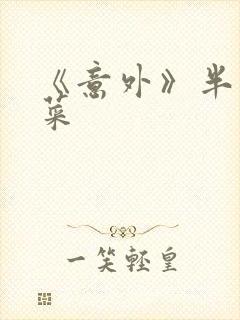 《意外》半
菜
一笑轻皇